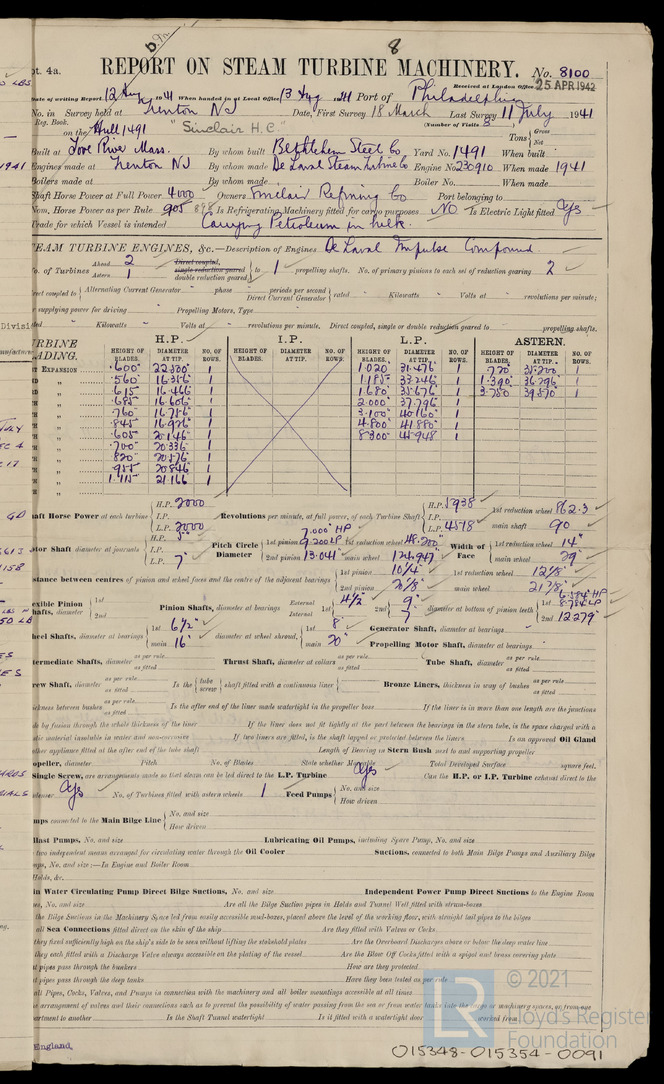 8
pt. 4a.
REPORT ON STEAM TURBINE MACHINERY. No. 8100
Received at London Office 25 APR 1942
Date of writing Report 12 Aug 1941 When handed in at Local Office 13 Aug 1941 Port of Philadelphia
No. in Survey held at Trenton NJ Date, First Survey 18 March Last Survey 11 July 1941
Reg. Book. (Number of Visits 8)
on the Hull 1491 "Sinclair H.C." Tons Gross Net
Built at Fore River Mass. By whom built Bethlehem Steel Co Yard No. 1491 When built
Engines made at Trenton NJ By whom made De Laval Steam Turbine Co Engine No. 230910 When made 1941
Boilers made at By whom made Boiler No. When made
Shaft Horse Power at Full Power 4000 Owners Sinclair Refining Co Port belonging to
Nom. Horse Power as per Rule 905 898 Is Refrigerating Machinery fitted for cargo purposes NO Is Electric Light fitted Yes
Trade for which Vessel is intended Carrying Petroleum in bulk.
STEAM TURBINE ENGINES, &c.—Description of Engines De Laval Impulse Compound
No. of Turbines Ahead 2 Astern 1 Direct coupled, single reduction geared double reduction geared to 1 propelling shafts. No. of primary pinions to each set of reduction gearing 2
direct coupled to Alternating Current Generator phase periods per second Direct Current Generator rated Kilowatts Volts at revolutions per minute;
supplying power for driving Propelling Motors, Type
Kilowatts Volts at revolutions per minute. Direct coupled, single or double reduction geared to propelling shafts.
TURBINE BLADING. H.P. I.P. L.P. ASTERN.
HEIGHT OF BLADES. DIAMETER AT TIP. NO. OF ROWS. HEIGHT OF BLADES. DIAMETER AT TIP. NO. OF ROWS. HEIGHT OF BLADES. DIAMETER AT TIP. NO. OF ROWS. HEIGHT OF BLADES. DIAMETER AT TIP. NO. OF ROWS.
EXPANSION .600" 22.500" 1 1.020 31.476" 1 .720" 35.200" 1
.560" 16.356" 1 1.185" 33.246" 1 1.390" 36.796" 1
.615" 16.466" 1 1.680" 35.676" 1 3.750 39.570" 1
.685" 16.606" 1 2.000" 37.796" 1
.760" 16.756" 1 3.100" 40.160" 1
.845" 16.926" 1 4.800" 41.880" 1
.605" 20.146" 1 8.300" 45.948" 1
.700" 20.336" 1
.820" 20.576" 1
.955" 20.846" 1
1.115" 21.166" 1
Shaft Horse Power at each turbine H.P. 2000 I.P. L.P. 2000 Revolutions per minute, at full power, of each Turbine Shaft H.P. 5938 I.P. L.P. 4518 1st reduction wheel 862.3 main shaft 90
Rotor Shaft diameter at journals H.P. 5" I.P. L.P. 7" Pitch Circle Diameter 7.000" HP 1st pinion 9.200 LP 1st reduction wheel 48.200" 2nd pinion 13.041" main wheel 124.947" Width of Face 1st reduction wheel 14" main wheel 29"
Distance between centres of pinion and wheel faces and the centre of the adjacent bearings 1st pinion 10 1/4" 2nd pinion 20 5/8" 1st reduction wheel 12 7/8" main wheel 21 3/8"
Flexible Pinion Shafts, diameter 1st 2nd Pinion Shafts, diameter at bearings External Internal 1st 4 1/2 2nd 9" 7 diameter at bottom of pinion teeth 1st 6.584" HP 8.784 LP 2nd 12.279"
Wheel Shafts, diameter at bearings 1st 6 1/2" main 16" diameter at wheel shroud, 1st 8" main 20" Generator Shaft, diameter at bearings
Propelling Motor Shaft, diameter at bearings
Intermediate Shafts, diameter as per rule as fitted Thrust Shaft, diameter at collars as per rule as fitted Tube Shaft, diameter as per rule as fitted
Screw Shaft, diameter as per rule as fitted Is the tube screw shaft fitted with a continuous liner Bronze Liners, thickness in way of bushes as per rule as fitted
thickness between bushes as per rule as fitted Is the after end of the liner made watertight in the propeller boss If the liner is in more than one length are the junctions
made by fusion through the whole thickness of the liner If the liner does not fit tightly at the part between the bearings in the stern tube, is the space charged with a
plastic material insoluble in water and non-corrosive If two liners are fitted, is the shaft lapped or protected between the liners Is an approved Oil Gland
other appliance fitted at the after end of the tube shaft Length of Bearing in Stern Bush next to and supporting propeller
Propeller, diameter Pitch No. of Blades State whether Moveable Total Developed Surface square feet.
Single Screw, are arrangements made so that steam can be led direct to the L.P. Turbine Yes Can the H.P. or I.P. Turbine exhaust direct to the
Condenser Yes No. of Turbines fitted with astern wheels 1 Feed Pumps No. and size How driven
Pumps connected to the Main Bilge Line No. and size How driven
Ballast Pumps, No. and size Lubricating Oil Pumps, including Spare Pump, No. and size
two independent means arranged for circulating water through the Oil Cooler Suctions, connected to both Main Bilge Pumps and Auxiliary Bilge
Pumps, No. and size:—In Engine and Boiler Room
Holds, &c.
Main Water Circulating Pump Direct Bilge Suctions, No. and size Independent Power Pump Direct Suctions to the Engine Room
No. and size Are all the Bilge Suction pipes in Holds and Tunnel Well fitted with strum-boxes
the Bilge Suctions in the Machinery Space led from easily accessible mud-boxes, placed above the level of the working floor, with straight tail pipes to the bilges
all Sea Connections fitted direct on the skin of the ship Are they fitted with Valves or Cocks
they fixed sufficiently high on the ship's side to be seen without lifting the stokehold plates Are the Overboard Discharges above or below the deep water line
they each fitted with a Discharge Valve always accessible on the plating of the vessel Are the Blow Off Cocks fitted with a spigot and brass covering plate
pipes pass through the bunkers How are they protected
pipes pass through the deep tanks Have they been tested as per rule
all Pipes, Cocks, Valves, and Pumps in connection with the machinery and all boiler mountings accessible at all times
arrangement of valves and their connections such as to prevent the possibility of water passing from the sea or from water tanks into the cargo or machinery spaces, or from one
compartment to another Is the Shaft Tunnel watertight Is it fitted with a watertight door worked from
England.
© 2021
Lloyd's Register
Foundation
015348-015354-0091